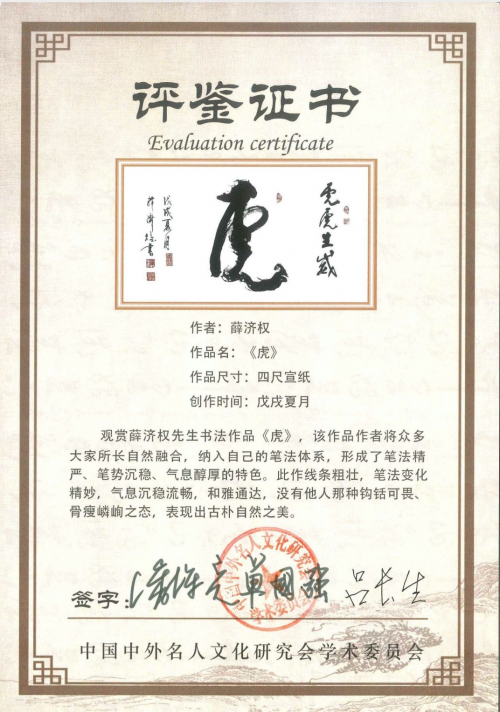 评鉴证书
Evaluation certificate
虎虎生威
虎
戊戌夏月
薛济权书
作者：薛济权
作品名：《虎》
作品尺寸：四尺宣纸
创作时间：戊戌夏月
观赏薛济权先生书法作品《虎》，该作品作者将众多
大家所长自然融合，纳入自己的笔法体系，形成了笔法精
严、笔势沉稳、气息醇厚的特色。此作线条粗壮，笔法变化
精妙，气息沉稳流畅，和雅通达，没有他人那种钩铦可畏、
骨瘦嶙峋之态，表现出古朴自然之美。
签字：
单国强 吕长生
中国中外名人文化研究会
学术委员会
中国中外名人文化研究会学术委员会